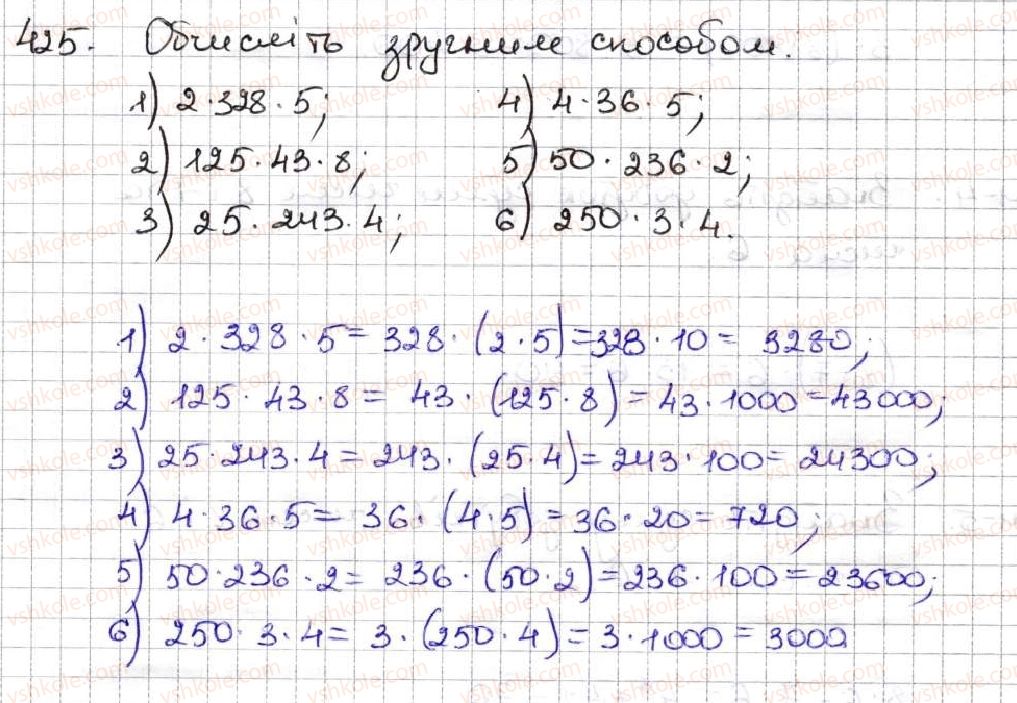 425. Обчисліть зручним способом.
1) 2·328·5; 4) 4·36·5;
2) 125·43·8; 5) 50·236·2;
3) 25·243·4; 6) 250·3·4.
1) 2·328·5= 328·(2·5)=328·10= 3280;
2) 125·43·8= 43·(125·8)=43·1000=43000;
3) 25·243·4=243·(25·4)=243·100=24300;
4) 4·36·5=36·(4·5)=36·20=720;
5) 50·236·2=236·(50·2)=236·100=23600;
6) 250·3·4=3·(250·4)=3·1000=3000